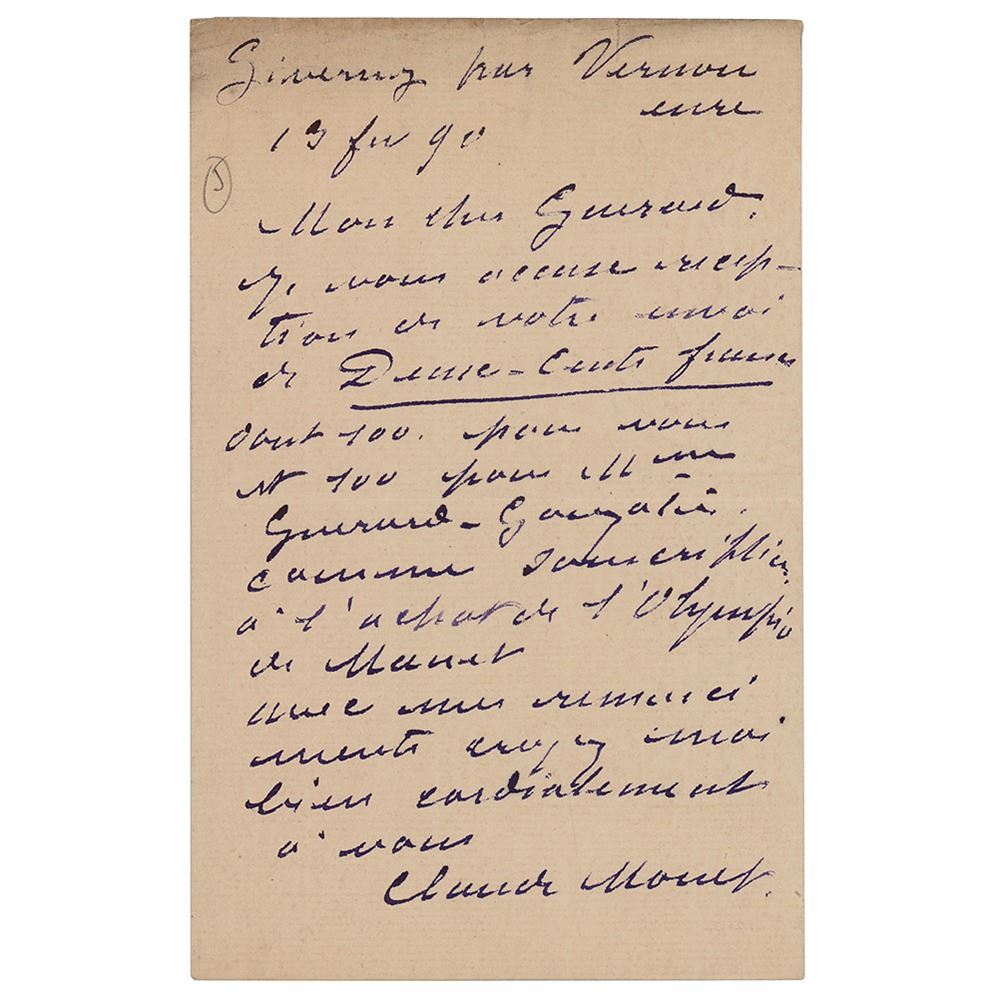 Giverny par Vernon
eure
13 fev 90
5
Mon cher Guerard,
Je vous accuse récep-
tion de votre envoi
de Deux-Cents francs
dont 100. pour vous
et 100 pour Mme
Guerard-Gonzalès.
comme souscription
à l'achat de l'Olympia
de Manet
avec mes remerci
ments croyez moi
bien cordialement
à vous
Claude Monet.